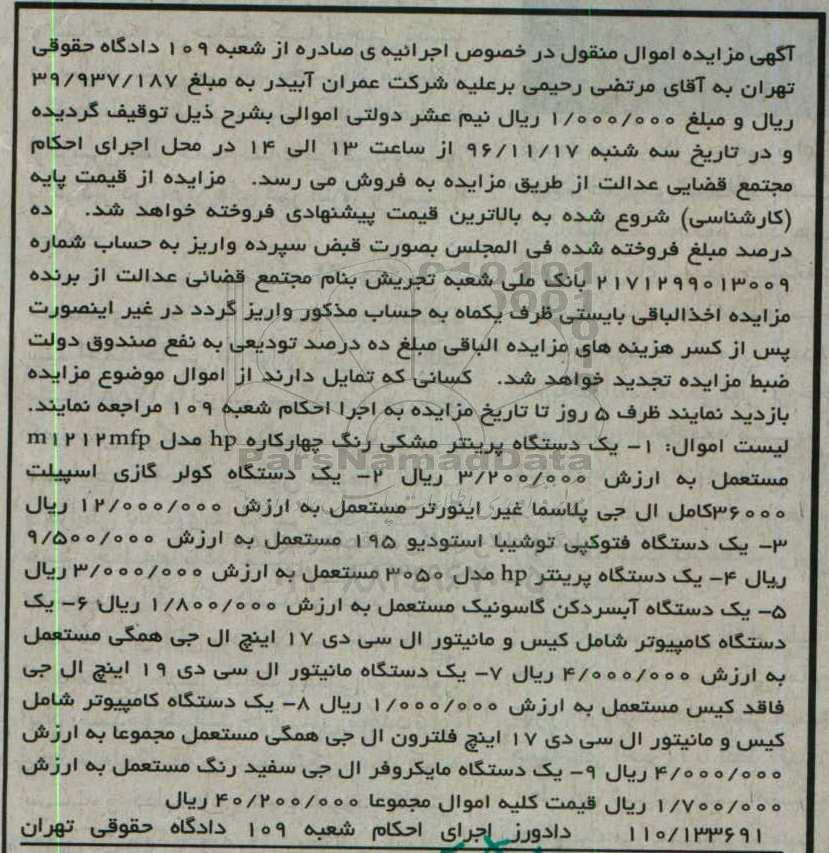 آگهی مزایده اموال منقول در خصوص اجرائیه ی صادره از شعبه ۱۰۹ دادگاه حقوقی
تهران به آقای مرتضی رحیمی برعلیه شرکت عمران آبیدر به مبلغ ۳۹/۹۳۷/۱۸۷
ریال و مبلغ ۱/۰۰۰/۰۰۰ ریال نیم عشر دولتی اموالی بشرح ذیل توقیف گردیده
و در تاریخ سه شنبه ۹۶/۱۱/۱۷ از ساعت ۱۳ الی ۱۴ در محل اجرای احکام
مجتمع قضایی عدالت از طریق مزایده به فروش می رسد. مزایده از قیمت پایه
(کارشناسی) شروع شده به بالاترین قیمت پیشنهادی فروخته خواهد شد. ده
درصد مبلغ فروخته شده فی المجلس بصورت قبض سپرده واریز به حساب شماره
۲۱۷۱۲۹۹۰۱۳۰۰۹ بانک ملی شعبه تجریش بنام مجتمع قضائی عدالت از برنده
مزایده اخذالباقی بایستی ظرف یکماه به حساب مذکور واریز گردد در غیر اینصورت
پس از کسر هزینه های مزایده الباقی مبلغ ده درصد تودیعی به نفع صندوق دولت
ضبط مزایده تجدید خواهد شد. کسانی که تمایل دارند از اموال موضوع مزایده
بازدید نمایند ظرف ۵ روز تا تاریخ مزایده به اجرا احکام شعبه ۱۰۹ مراجعه نمایند.
لیست اموال: ۱- یک دستگاه پرینتر مشکی رنگ چهارکاره hp مدل m۱۲۱۲mfp
ParsNamadData
مستعمل به ارزش ۳/۲۰۰/۰۰۰ ریال ۲- یک دستگاه کولر گازی اسپیلت
۳۶۰۰۰کامل ال جی پلاسما غیر اینورتر مستعمل به ارزش ۱۲/۰۰۰/۰۰۰ ریال
۳- یک دستگاه فتوکپی توشیبا استودیو ۱۹۵ مستعمل به ارزش ۹/۵۰۰/۰۰۰
ریال ۴- یک دستگاه پرینتر hp مدل ۳۰۵۰ مستعمل به ارزش ۳/۰۰۰/۰۰۰ ریال
۵- یک دستگاه آبسردکن گاسونیک مستعمل به ارزش ۱/۸۰۰/۰۰۰ ریال ۶- یک
دستگاه کامپیوتر شامل کیس و مانیتور ال سی دی ۱۷ اینچ ال جی همگی مستعمل
به ارزش ۴/۰۰۰/۰۰۰ ریال ۷- یک دستگاه مانیتور ال سی دی ۱۹ اینچ ال جی
فاقد کیس مستعمل به ارزش ۱/۰۰۰/۰۰۰ ریال ۸- یک دستگاه کامپیوتر شامل
کیس و مانیتور ال سی دی ۱۷ اینچ فلترون ال جی همگی مستعمل مجموعا به ارزش
۴/۰۰۰/۰۰۰ ریال ۹- یک دستگاه مایکروفر ال جی سفید رنگ مستعمل به ارزش
۱/۷۰۰/۰۰۰ ریال قیمت کلیه اموال مجموعا ۴۰/۲۰۰/۰۰۰ ریال
۱۱۰/۱۳۳۶۹۱ دادورز اجرای احکام شعبه ۱۰۹ دادگاه حقوقی تهران